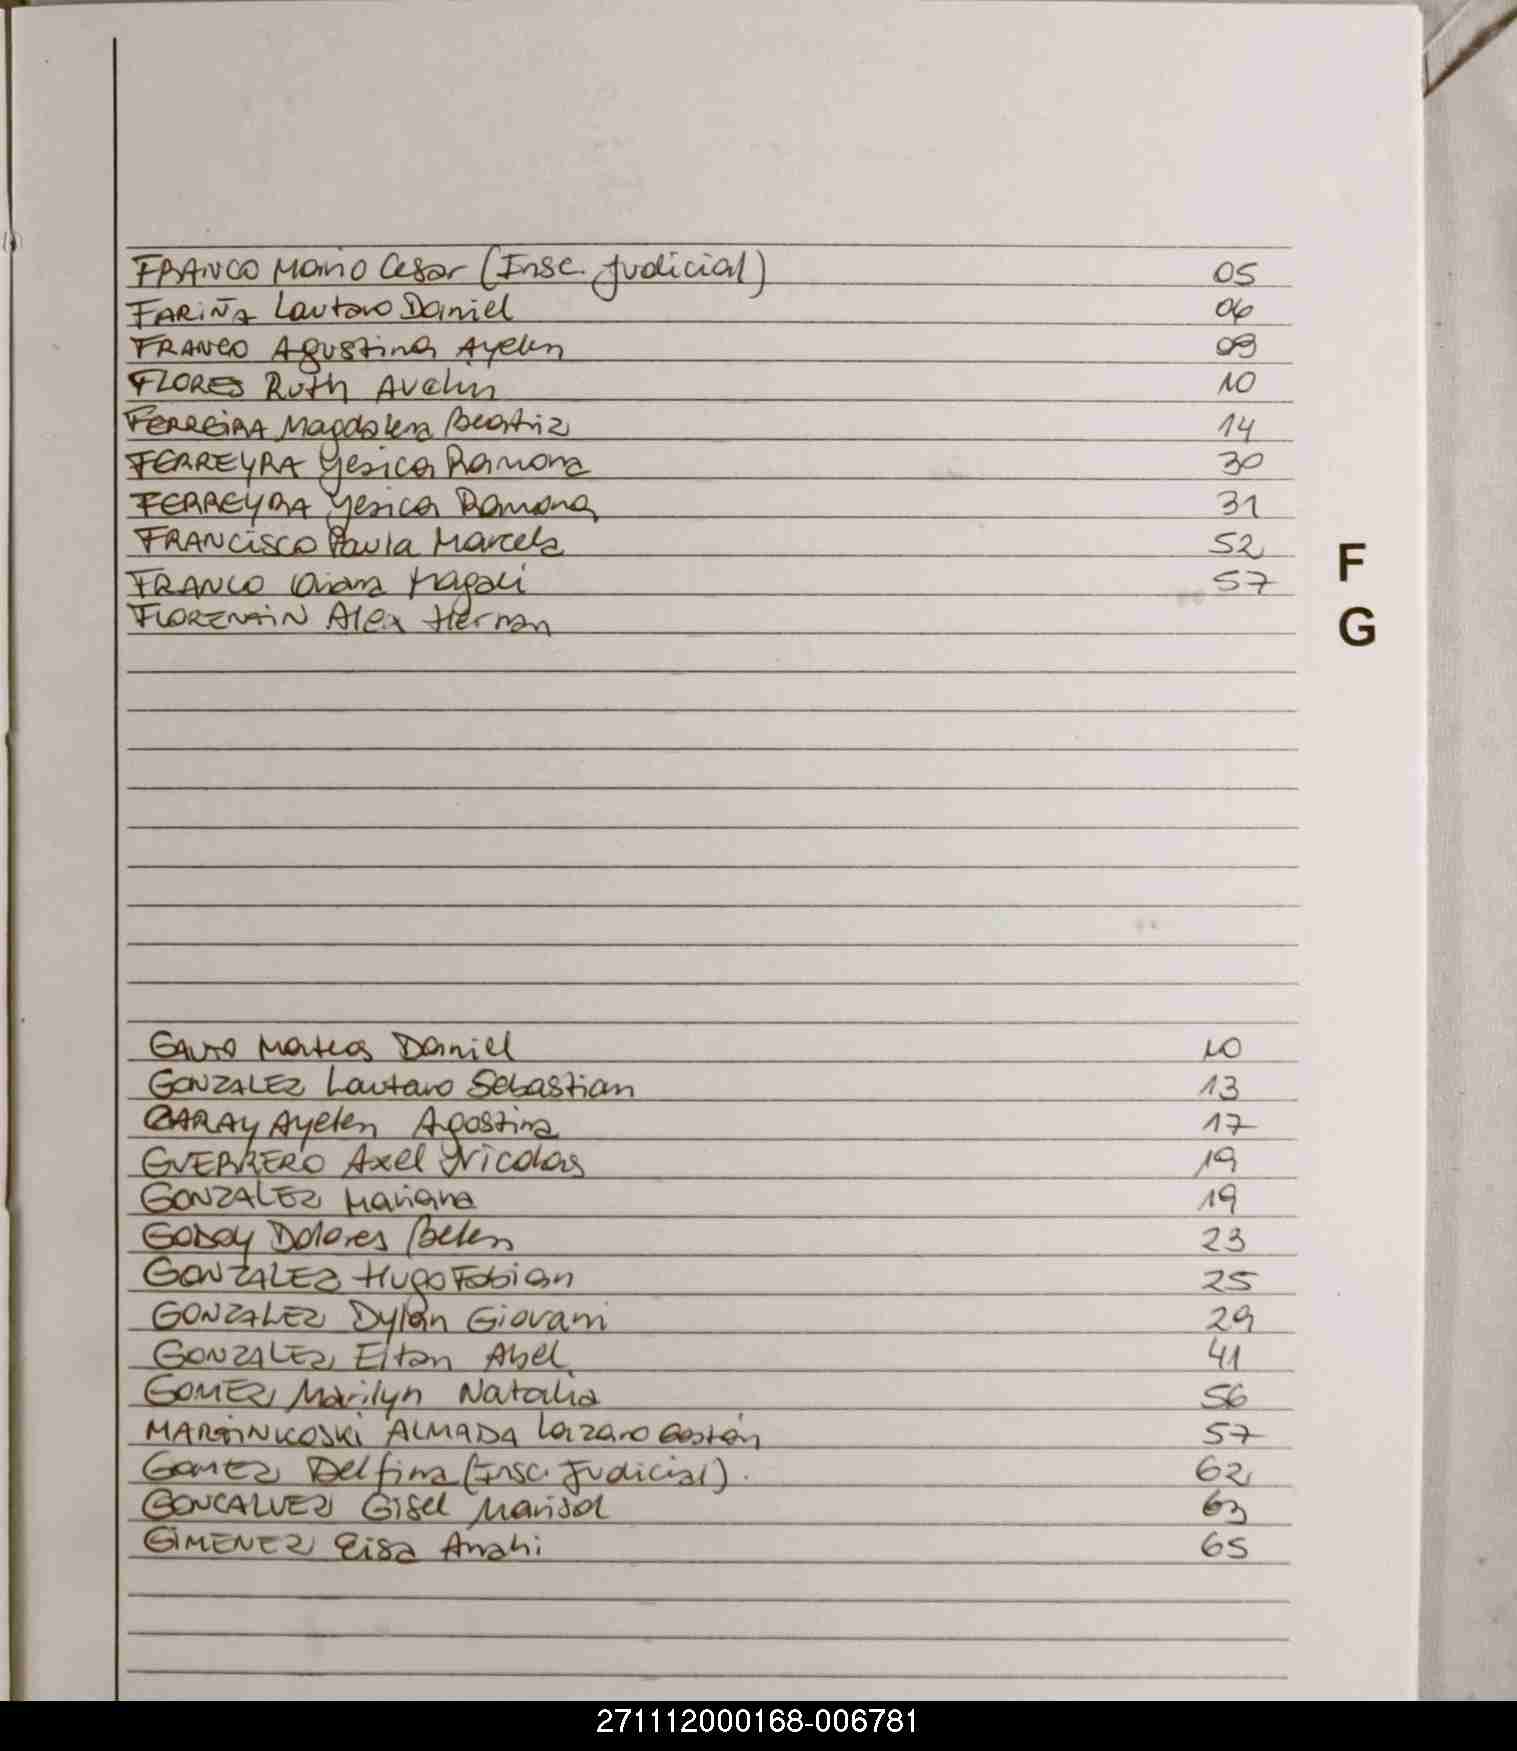 FRANCO Mario Cesar (Insc. Judicial) 05
FARIÑA Lautaro Daniel 06
FRANCO Agustina Ayelen 09
FLORES Ruth Avelin 10
FERREIRA Magdalena Beatriz 14
FERREYRA Yesica Ramona 30
FERREYRA Yesica Ramona 31
FRANCISCO Paula Marcela 52
F
FRANCO Oriana Magali 57
FLORENTIN Alex Hernan
G
GAUTO Mateos Daniel 10
GONZALEZ Lautaro Sebastian 13
GARAY Ayelen Agostina 17
GUERRERO Axel Nicolas 19
GONZALEZ Mariana 19
GODOY Dolores Belen 23
GONZALEZ Hugo Fabian 25
GONZALEZ Dylan Giovani 29
GONZALEZ Eitan Abel 41
GOMEZ Marilyn Natalia 56
MARTINKOSKI ALMADA Lazaro Gastón 57
GOMEZ Delfina (Insc. Judicial). 62
GONCALVEZ Gisel Marisol 63
GIMENEZ Elsa Anahi 65
271112000168-006781